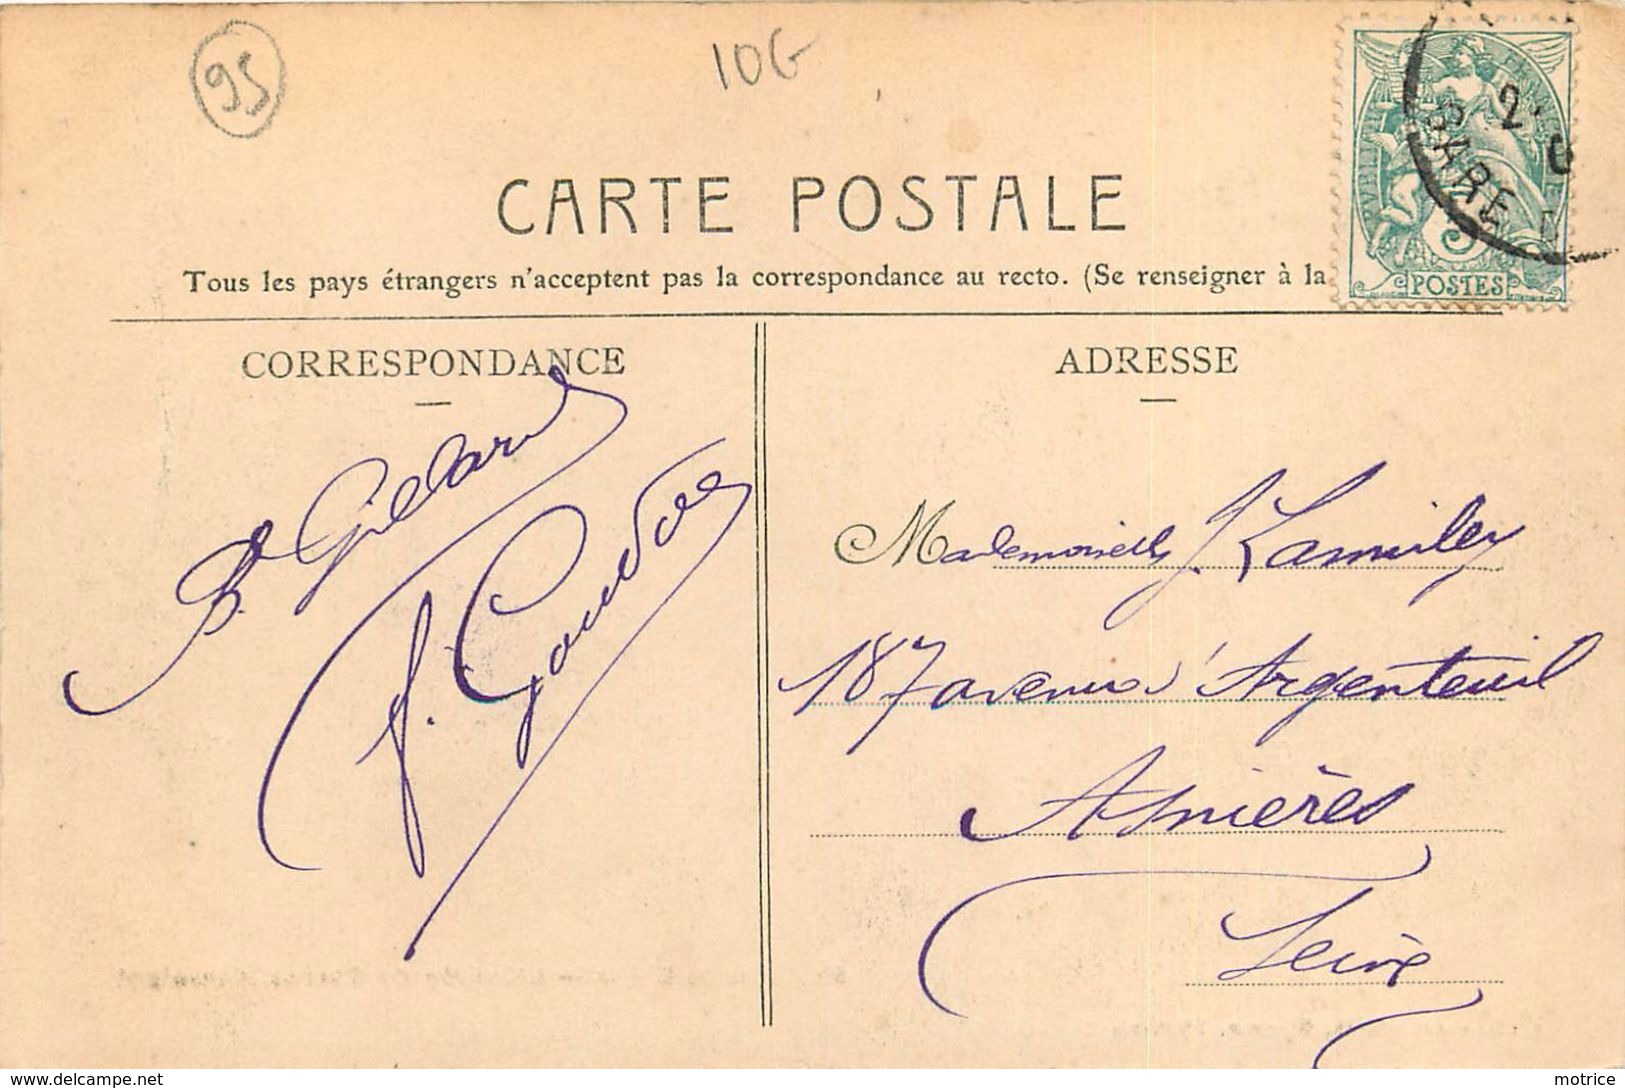 95
10G
CARTE POSTALE
Tous les pays étrangers n'acceptent pas la correspondance au recto. (Se renseigner à la
POSTES
5
CORRESPONDANCE
ADRESSE
Gillard
f. Goudou
Mademoiselle J. Lamiley
187 avenue d'Argenteuil
Asnières
Seine
delcampe.net
motrice